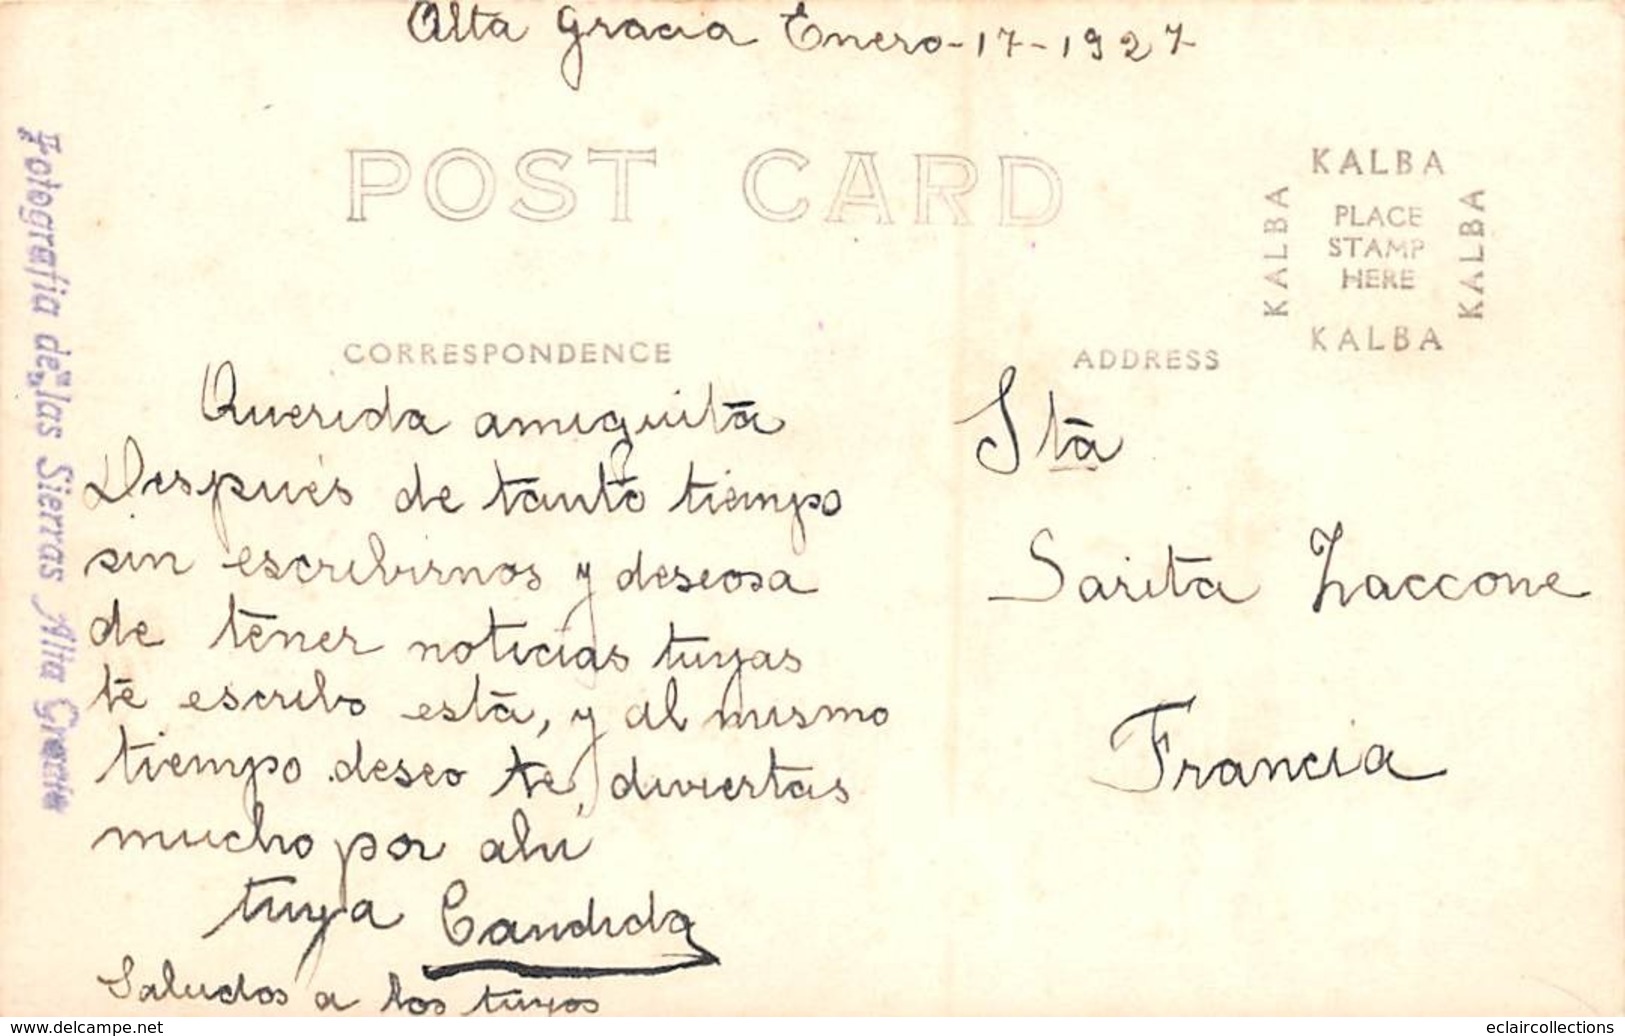 Alta Gracia Enero-17-1927
POST CARD
KALBA
KALBA
PLACE
STAMP
HERE
KALBA
KALBA
Fotografia de las Sierras Alta Gracia
CORRESPONDENCE
ADDRESS
Querida amiguita
Después de tanto tiempo
sin escribirnos y deseosa
de tener noticias tuyas
te escribo esta, y al mismo
tiempo deseo te, diviertas
mucho por ahi
tuya Candida
Saludos a los tuyos
Sta
Sarita Zaccone
Francia
www.delcampe.net
eclaircollections